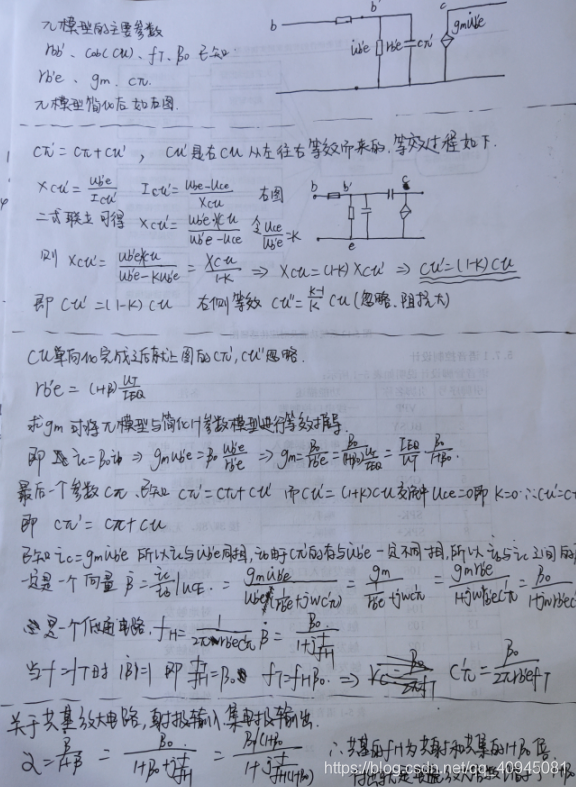 π模型的主要参数
rbb'、Cob(Cu)、fT、β0 已知
rb'e、gm、Cπ.
π模型简化后如右图.
b b' c
U̇b'e rb'e Cπ' gmU̇b'e
Cπ' = Cπ + Cu' , Cu'是右Cu从左往右等效而来的,等效过程如下.
XCu' = Ub'e/ICu' ICu' = (Ub'e-Uce)/XCu 右图
二式联立可得 XCu' = Ub'eXCu/(Ub'e-Uce) 令Uce/Ub'e=K
b b' c e
则 XCu' = Ub'eXCu/(Ub'e-KUb'e) = XCu/(1-K) ⇒ XCu=(1-K)XCu' ⇒ Cu'=(1-K)Cu
即 Cu'=(1-K)Cu 右侧等效 Cu''=(K-1)/K Cu(忽略,阻抗大)
Cu单向化完成之后就上图的Cπ',Cu''忽略.
rb'e = (1+β)UT/IEQ
求gm可将π模型与简化H参数模型进行等效推导.
即 ic=β0ib ⇒ gmUb'e=β0 Ub'e/rb'e ⇒ gm=β0/rb'e=β0/((1+β0)UT/IEQ)=IEQ/UT·β0/(1+β0).
最后一个参数Cπ.已知 Cπ'=Cπ+Cu' 而Cu'=(1+K)Cu Uce=0即K=0∴Cu'=C
即 Cπ'=Cπ+Cu
已知ic=gmUb'e 所以ic与Ub'e同相,ib由于Cπ'的存在与Ub'e一定不同相,所以ib与ic之间的
一定是一个向量 β̇=ic/ib|Uce. = gmUb'e/(Ub'e(1/rb'e+jwCπ')) = gm/(1/rb'e+jwCπ') = gmrb'e/(1+jwrb'eCπ') = β0/(1+jwrb'e
是一个低通电路,fH=1/(2πrb'eCπ') β̇=β0/(1+jf/fH)
当f=fT时 |β̇|=1 即 f/fH=β0 fT=fHβ0. ⇒ Cπ'=β0/(2πrb'efT)
关于共基放大电路,射极输入,集电极输出.
α=β̇/(1+β̇) = β0/(1+β0+jf/fH) = (β0/(1+β0))/(1+jf/(fH(1+β0))) ∴共基的fH为共射和共集的1+β0倍,
https://blog.csdn.net/qq_40945081